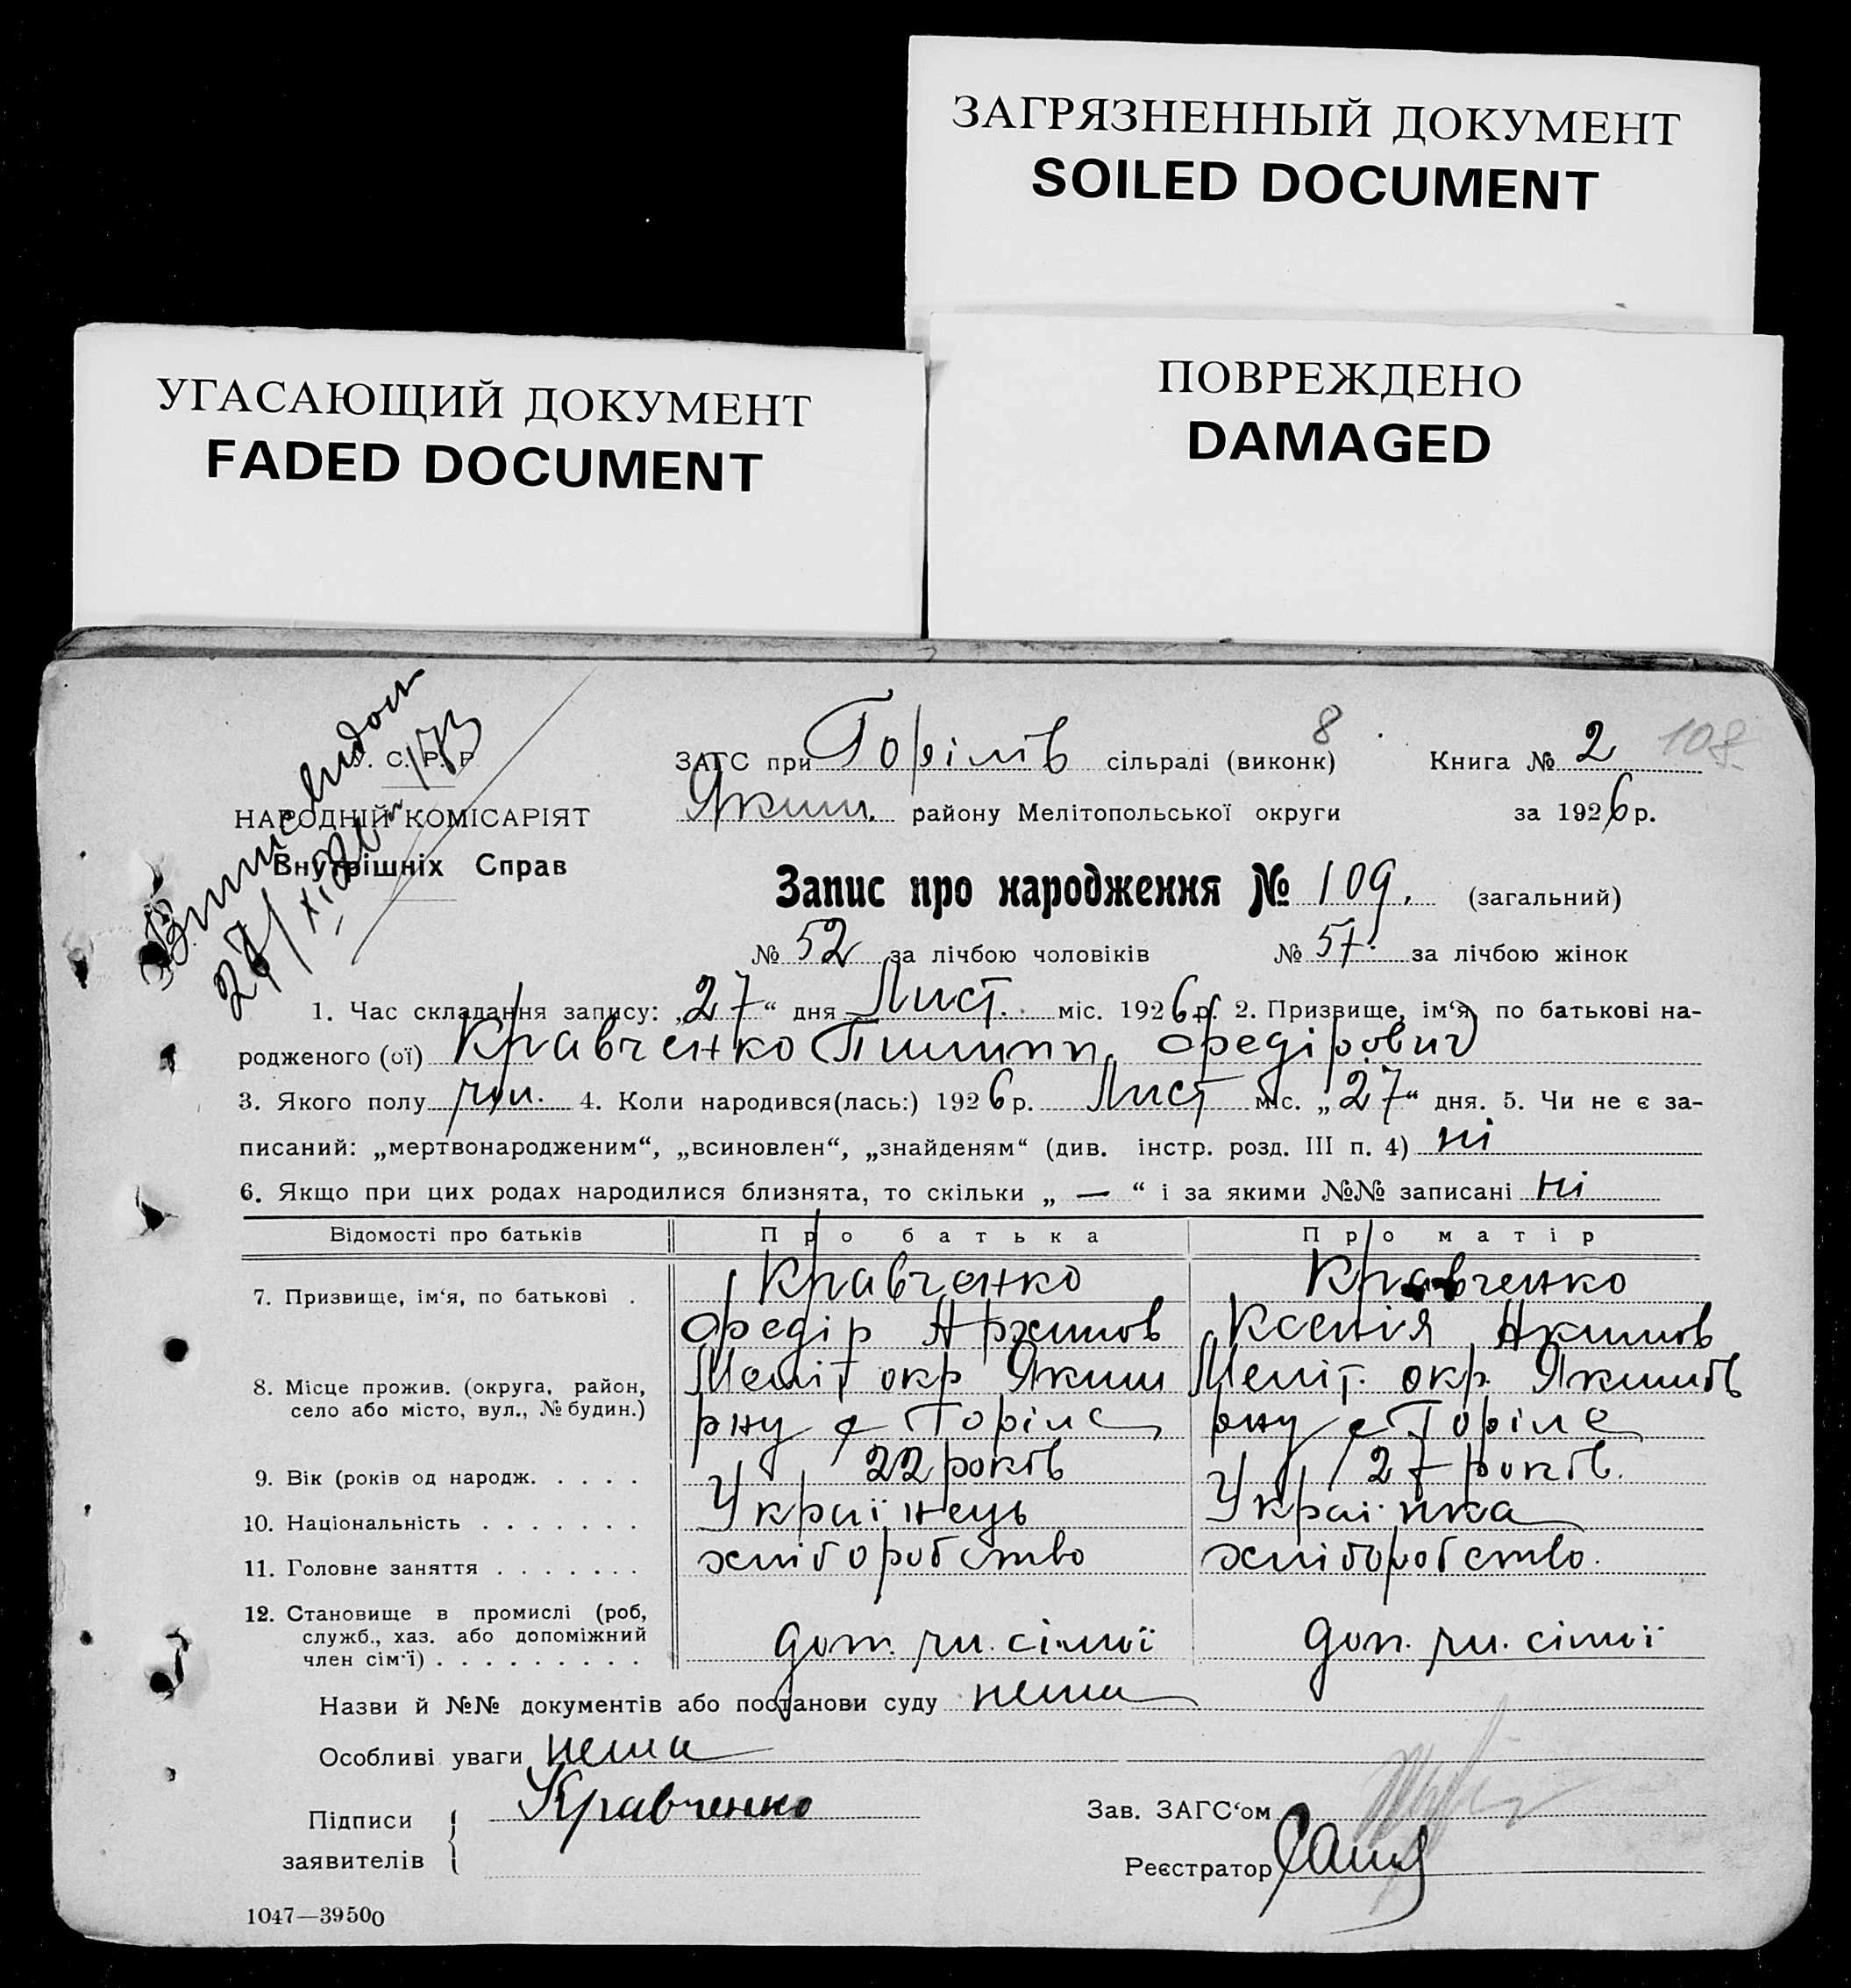 ЗАГРЯЗНЕННЫЙ ДОКУМЕНТ
SOILED DOCUMENT
УГАСАЮЩИЙ ДОКУМЕНТ
FADED DOCUMENT
ПОВРЕЖДЕНО
DAMAGED
С. Р. Р
НАРОДНІЙ КОМІСАРІЯТ
Внутрішніх Справ
27/XI 26 173
8
108
ЗАГС при Горілів сільраді (виконк) Книга № 2
Яким. району Мелітопольської округи за 1926 р.
Запис про народження № 109. (загальний)
№ 52 за лічбою чоловіків № 57. за лічбою жінок
1. Час складання запису: „27“ дня Лист. міс. 1926 р. 2. Призвище, ім‘я, по батькові на-
родженого (ої) Кравченко Пилипп Федірович
3. Якого полу чол. 4. Коли народився(лась:) 1926 р. Лист міс. „27“ дня. 5. Чи не є за-
писаний: „мертвонародженим“, „всиновлен“, „знайденям“ (див. інстр. розд. III п. 4) ні
6. Якщо при цих родах народилися близнята, то скільки „ — “ і за якими №№ записані ні
Відомості про батьків Про батька Про матір
7. Призвище, ім‘я, по батькові . Кравченко Кравченко
Федір Ксенія Акимов
8. Місце прожив. (округа, район, Меліт окр Яким Меліт. окр. Якимів
село або місто, вул., № будин.) рну с Горіле рну с Горіле
9. Вік (років од народж. . . . . 22 років 27 років.
10. Національність . . . . . . . Українець Українка
11. Головне заняття . . . . . . . хліборобство хліборобство.
12. Становище в промислі (роб,
служб., хаз. або допоміжний
член сім‘ї) . . . . . . . . . доп. чл. сімої доп. чл. сімої
Назви й №№ документів або постанови суду нема
Особливі уваги нема
Підписи Кравченко Зав. ЗАГС‘ом
заявителів Реєстратор
1047—39500